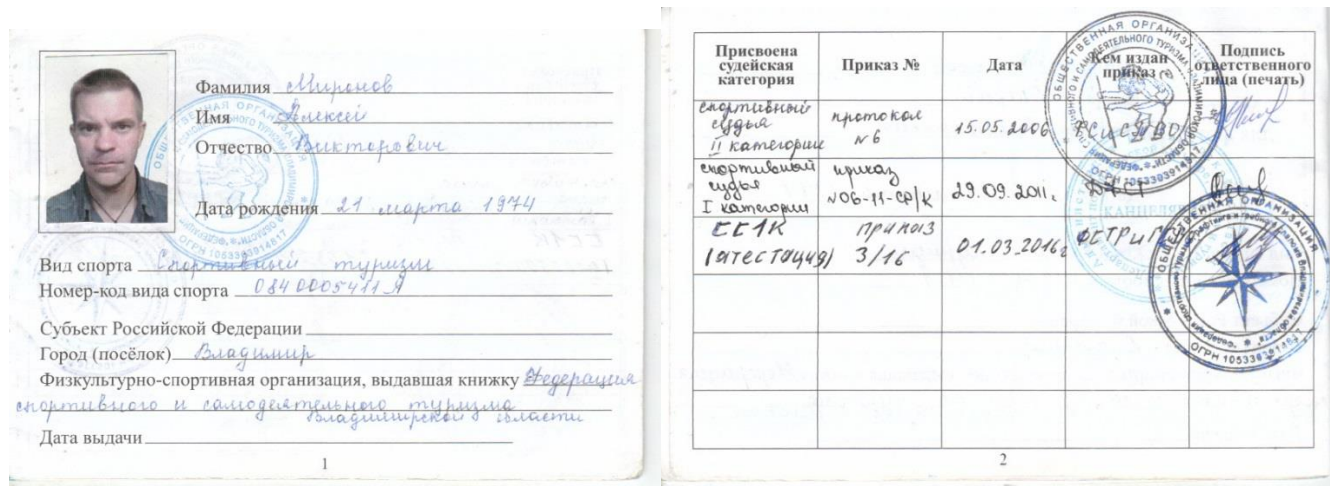 Фамилия Миронов
Имя Алексей
Отчество Викторович
Дата рождения 21 марта 1974
Вид спорта Спортивный туризм
Номер-код вида спорта 0840005411Я
Субъект Российской Федерации
Город (посёлок) Владимир
Физкультурно-спортивная организация, выдавшая книжку Федерация
спортивного и самодеятельного туризма
Владимирской области
Дата выдачи
1
Присвоена судейская категория Приказ № Дата Кем издан приказ Подпись ответственного лица (печать)
спортивный судья II категории протокол №6 15.05.2006
спортивный судья I категории приказ №06-11-СР/К 29.09.2011г.
СС1К (атестация) приказ 3/16 01.03.2016г
ОБЩЕСТВЕННАЯ ОРГАНИЗАЦИЯ
ОГРН 1053303914817
КАНЦЕЛЯРИЯ
ОБЩЕСТВЕННАЯ ОРГАНИЗАЦИЯ
2